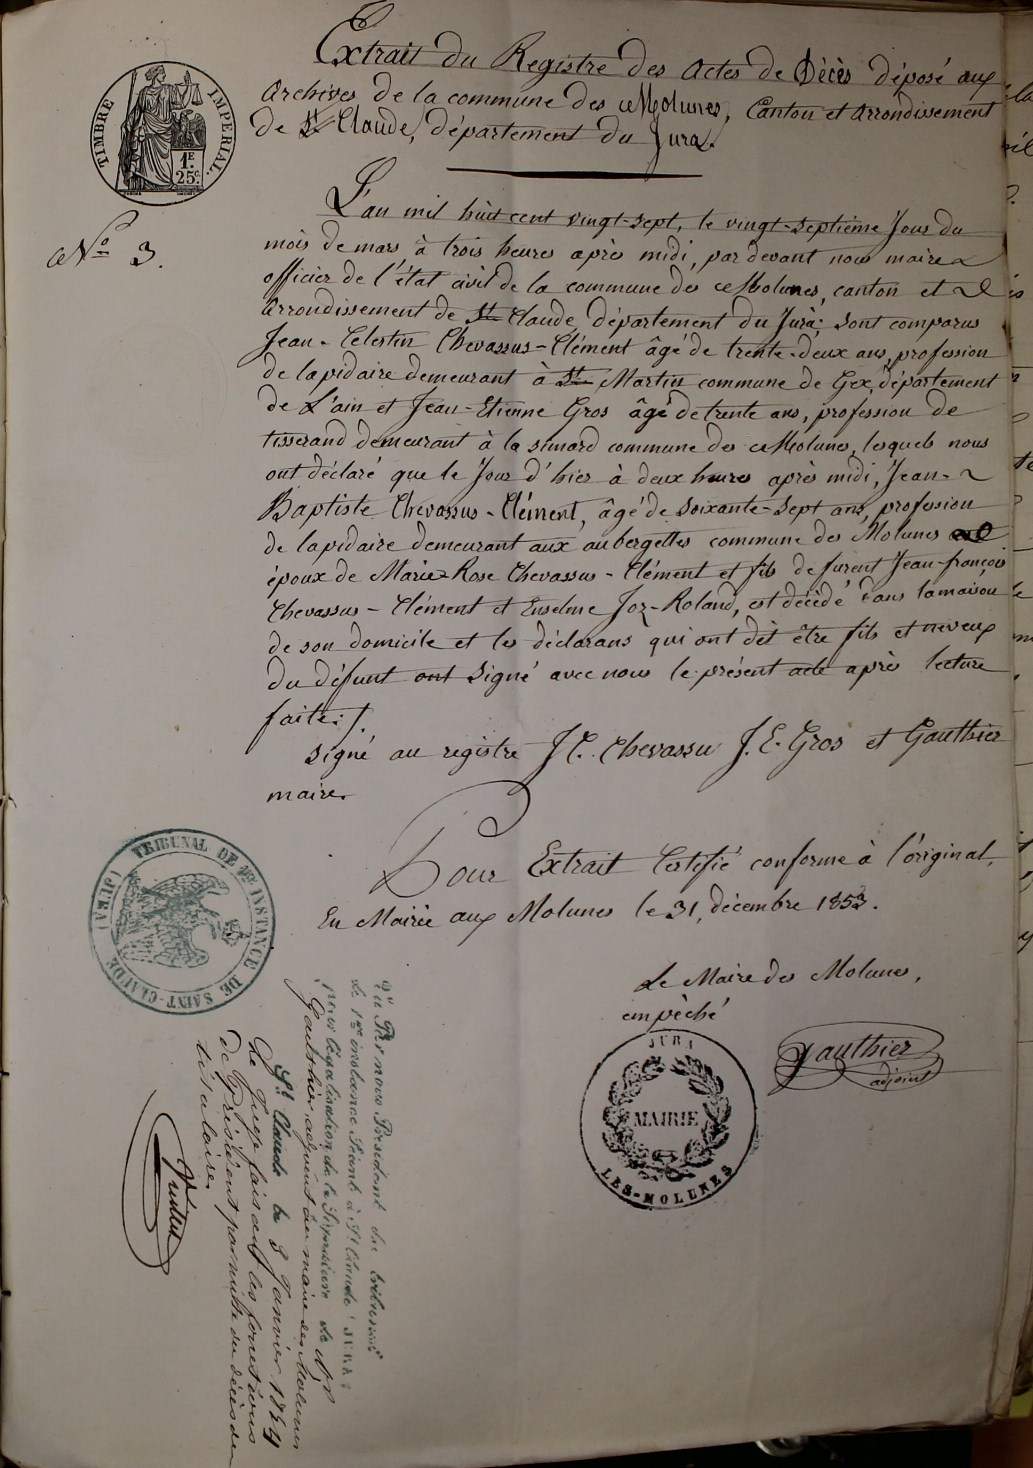 Extrait du Registre des Actes de Décès déposé aux
Archives de la commune des Molunes, Canton et Arrondissement
de St Claude, département du Jura.
TIMBRE IMPERIAL.
1 F.
25 c.
No 3.
L'an mil huit cent vingt-sept, le vingt-septième Jour du
mois de mars à trois heures après midi, par devant nous maire
officier de l'état civil de la commune des Molunes, canton et
arrondissement de St Claude, département du Jura; sont comparus
Jean-Celestin Chevassus-Clément âgé de trente-deux ans, profession
de lapidaire demeurant à St Martin commune de Gex, département
de L'ain et Jean-Etienne Gros âgé de trente ans, profession de
tisserand demeurant à la simard commune des Molunes, lesquels nous
ont déclaré que le Jour d'hier à deux heures après midi, Jean-
Baptiste Chevassus-Clément, âgé de soixante-sept ans, profession
de lapidaire demeurant aux aubergettes commune des Molunes
époux de Marie-Rose Chevassus-Clément et fils de furent Jean-françois
Chevassus-Clément et Enselme Joz-Roland, est décédé dans la maison
de son domicile et les déclarans qui ont dit être fils et neveux
du défunt ont signé avec nous le présent acte après lecture
faite./.
Signé au registre J C. Chevassu J. E. Gros et Gauthier
maire.
Pour Extrait Certifié conforme à l'original,
En Mairie aux Molunes le 31, décembre 1853.
Le Maire des Molunes,
empêché
Gauthier
adjoint
JURA
MAIRIE
LES-MOLUNES
TRIBUNAL DE 1ERE INSTANCE DE SAINT-CLAUDE (JURA)
Vu Par nous Président du tribunal
de 1ère instance Séant à St Claude (JURA)
pour légalisation de la Signature de Mr
Gauthier, adjoint au maire des Molunes
St Claude le 3 Janvier 1854
Le Juge faisant les fonctions
de Président par suite du décès du
titulaire